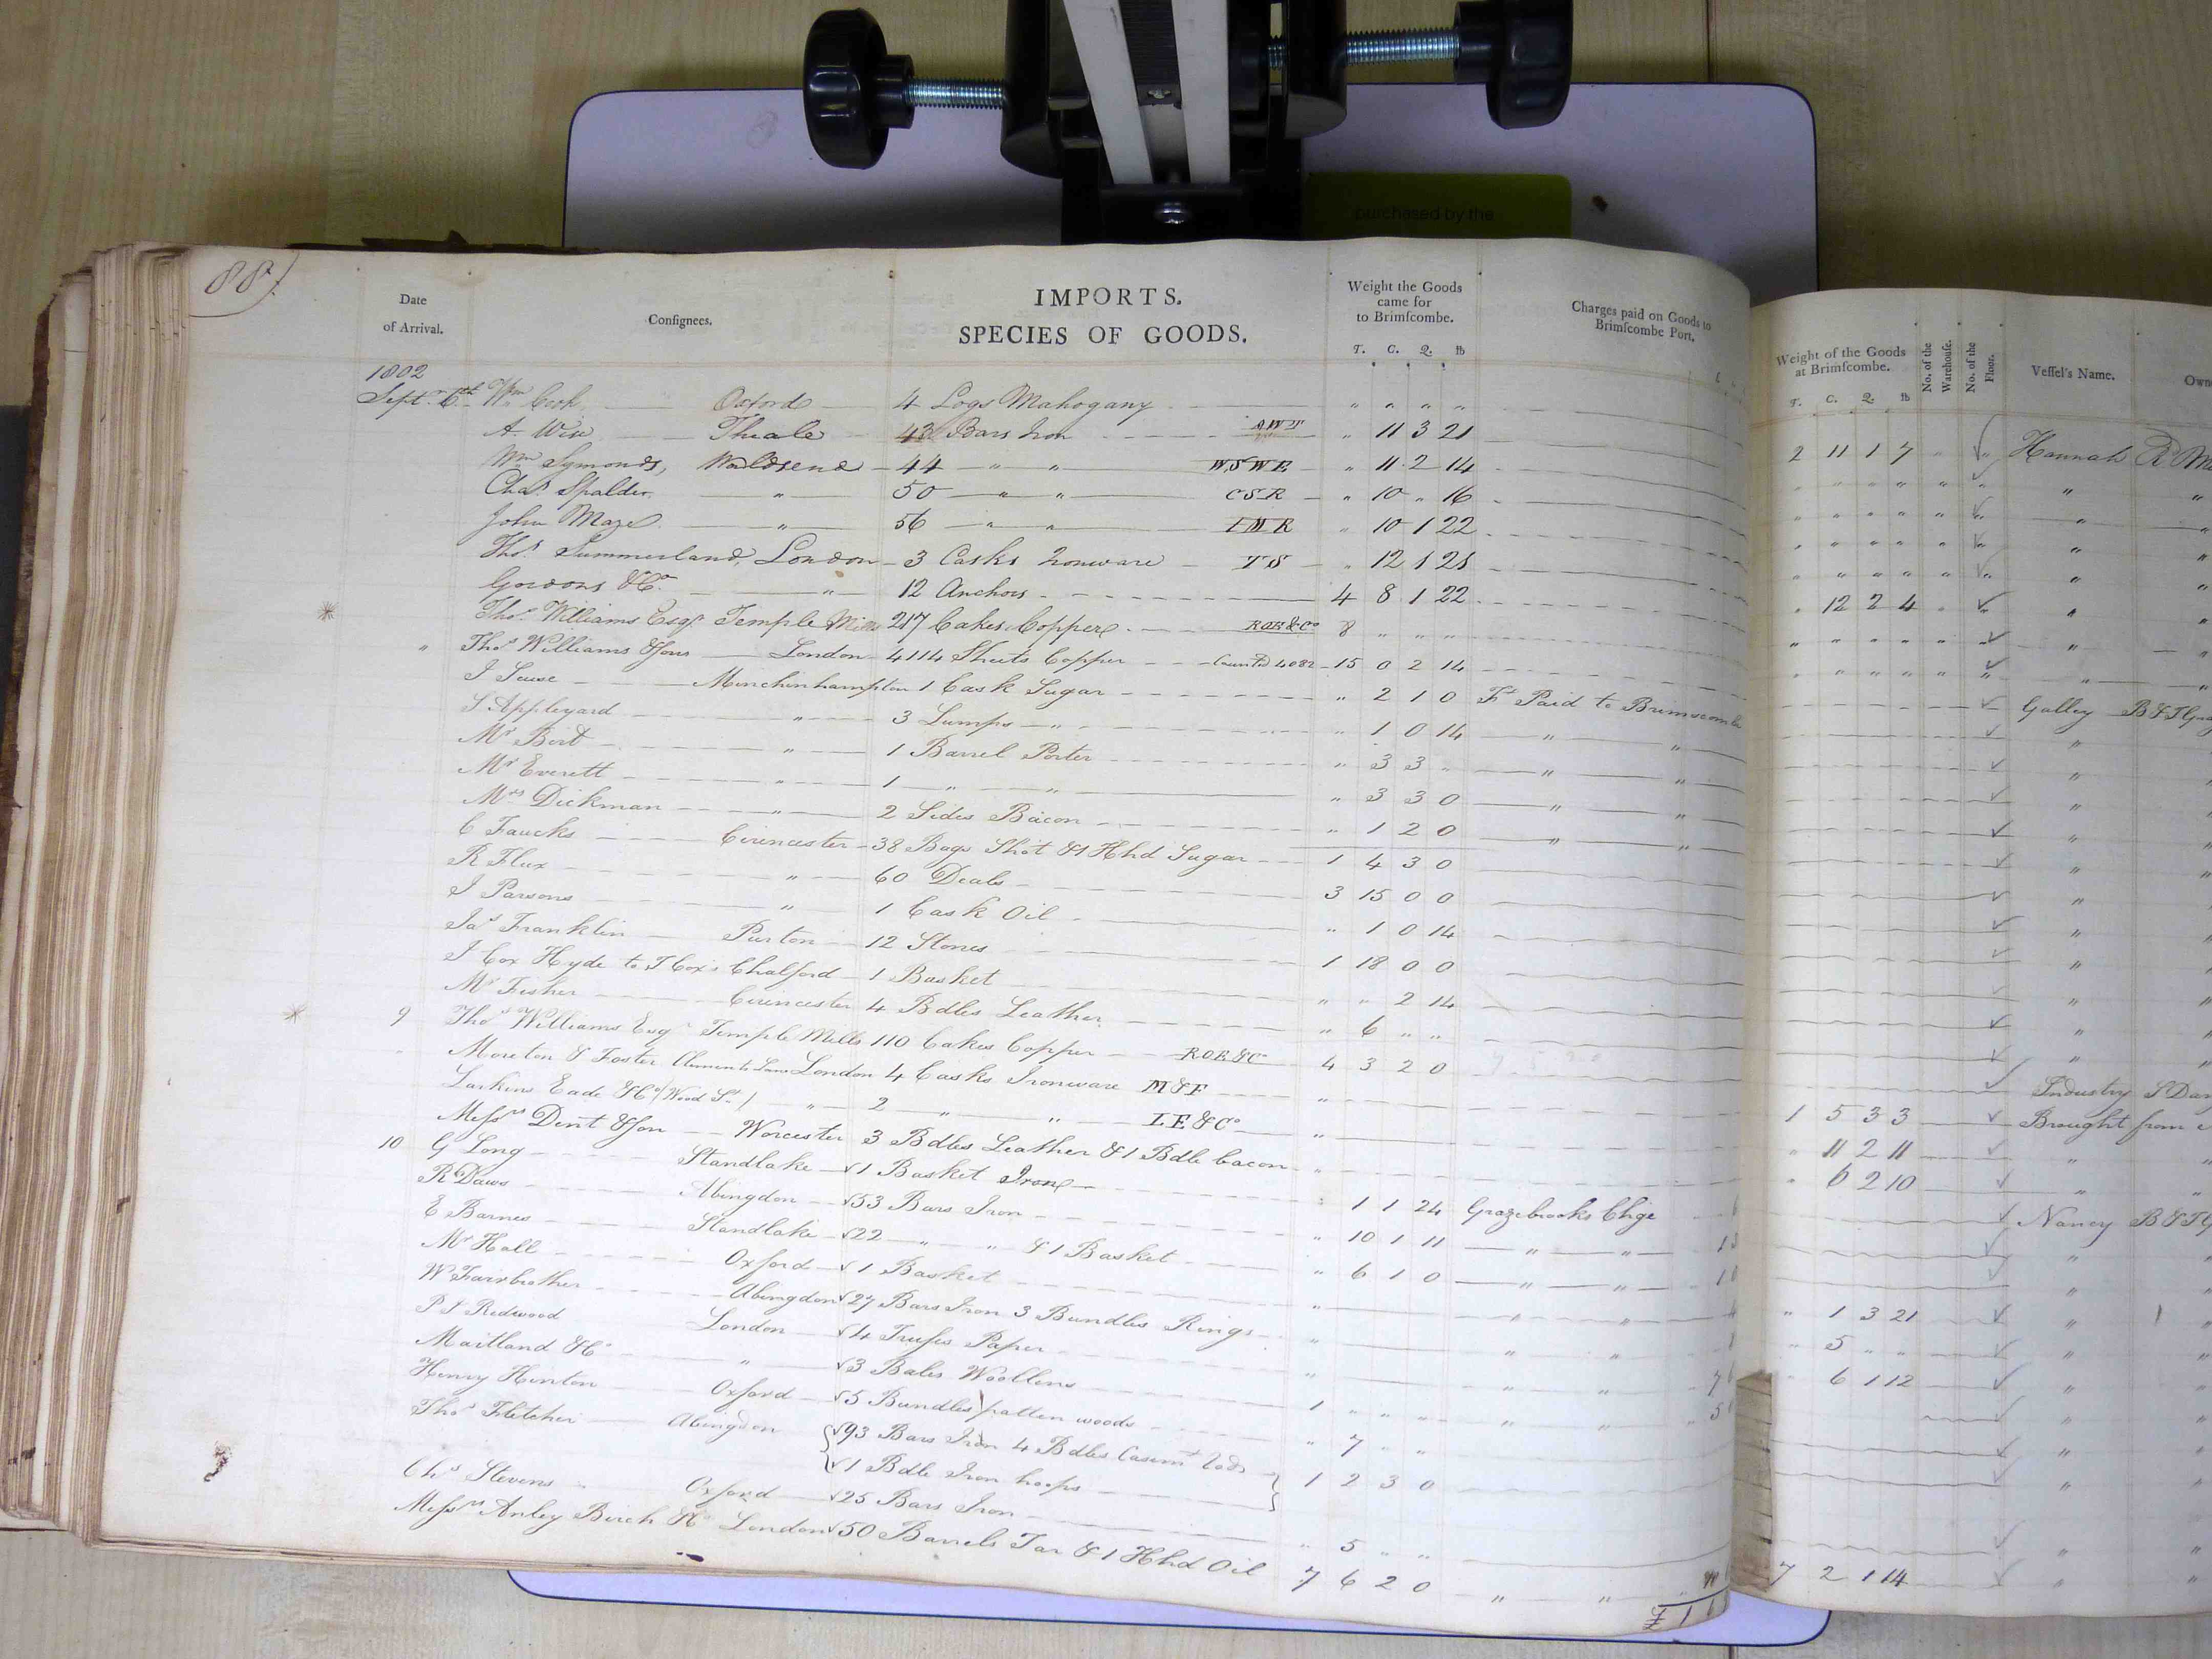 purchased by the
88)
Date of Arrival.
Consignees.
IMPORTS.
SPECIES OF GOODS.
Weight the Goods came for to Brimscombe.
T. C. Q. lb
Charges paid on Goods to Brimscombe Port.
Weight of the Goods at Brimscombe.
T. C. Q. lb
No. of the Warehouse.
No. of the Floor.
Vessel's Name.
1802
Sept. 6th Wm Cook Oxford 4 Logs Mahogany " " " " 2 11 1 7 " " Hannah
A. Wise Theale 43 Bars Iron AWT " 11 3 21
Wm Symonds, Wallsend 44 " " WSWE " 11 2 14
Chas Spalder " 50 " " CSR " 10 " 16
John Maze " 56 " " IMR " 10 1 22
Thos Summerland, London 3 Casks Ironware TS " 12 1 21 " 12 2 4
Gordons & Co " 12 Anchors 4 8 1 22
Thos Williams Esqr Temple Mills 217 Cakes Copper ROE&Co 8 " " "
" Thos Williams & Sons London 4114 Sheets Copper Counted 4082 15 0 2 14 Galley
I Scuse Minchinhampton 1 Cask Sugar " 2 1 0 Ft Paid to Brimscombe
S Appleyard " 3 Lumps " " 1 0 14 " "
Mr Bird " 1 Barrel Porter " 3 3 " " "
Mr Everett " 1 " " " 3 3 0 " "
Mrs Dickman " 2 Sides Bacon " 1 2 0 " "
C Faucks Cirencester 38 Bags Shot & 1 Hhd Sugar 1 4 3 0
R Flux " 60 Deals 3 15 0 0
I Parsons " 1 Cask Oil " 1 0 14
Jas Franklin Purton 12 Stones 1 18 0 0
I Cox Hyde to I Cox's Chalford 1 Basket " " 2 14
Mr Fisher Cirencester 4 Bdles Leather " 6 " "
9 Thos Williams Esqr Temple Mills 110 Cakes Copper ROE&Co 4 3 2 0 Industry
" Moreton & Foster Clements Lane London 4 Casks Ironware M&F " 1 5 3 3 Brought from
Larkins Eade & Co (Wood St.) " 2 " " LE&Co " " 11 2 11
Messrs Dent & Son Worcester 3 Bdles Leather & 1 Bdle bacon " " 6 2 10
10 G Long Standlake 1 Basket Iron " 1 1 24 Grazebrooks Chge Nancy
R Daws Abingdon 53 Bars Iron " 10 1 11 " "
E Barnes Standlake 22 " " & 1 Basket " 6 1 0 " "
Mr Hall Oxford 1 Basket " " " " 1 3 21
W Fairbrother Abingdon 27 Bars Iron 3 Bundles Rings " " " " 5 " "
P I Redwood London 4 Trusses Paper " " " " 6 1 12
Maitland & Co " 3 Bales Woollens 1 " " " " "
Henry Hinton Oxford 5 Bundles patten woods " 7 " "
Thos Fletcher Abingdon 93 Bars Iron 4 Bdles
1 Bdle Iron hoops 1 2 3 0
Chs Stevens Oxford 25 Bars Iron " 5 " "
Messrs Anley Birch & Co London 50 Barrels Tar & 1 Hhd Oil 7 6 2 0 " " 7 2 1 14
£ 1 6